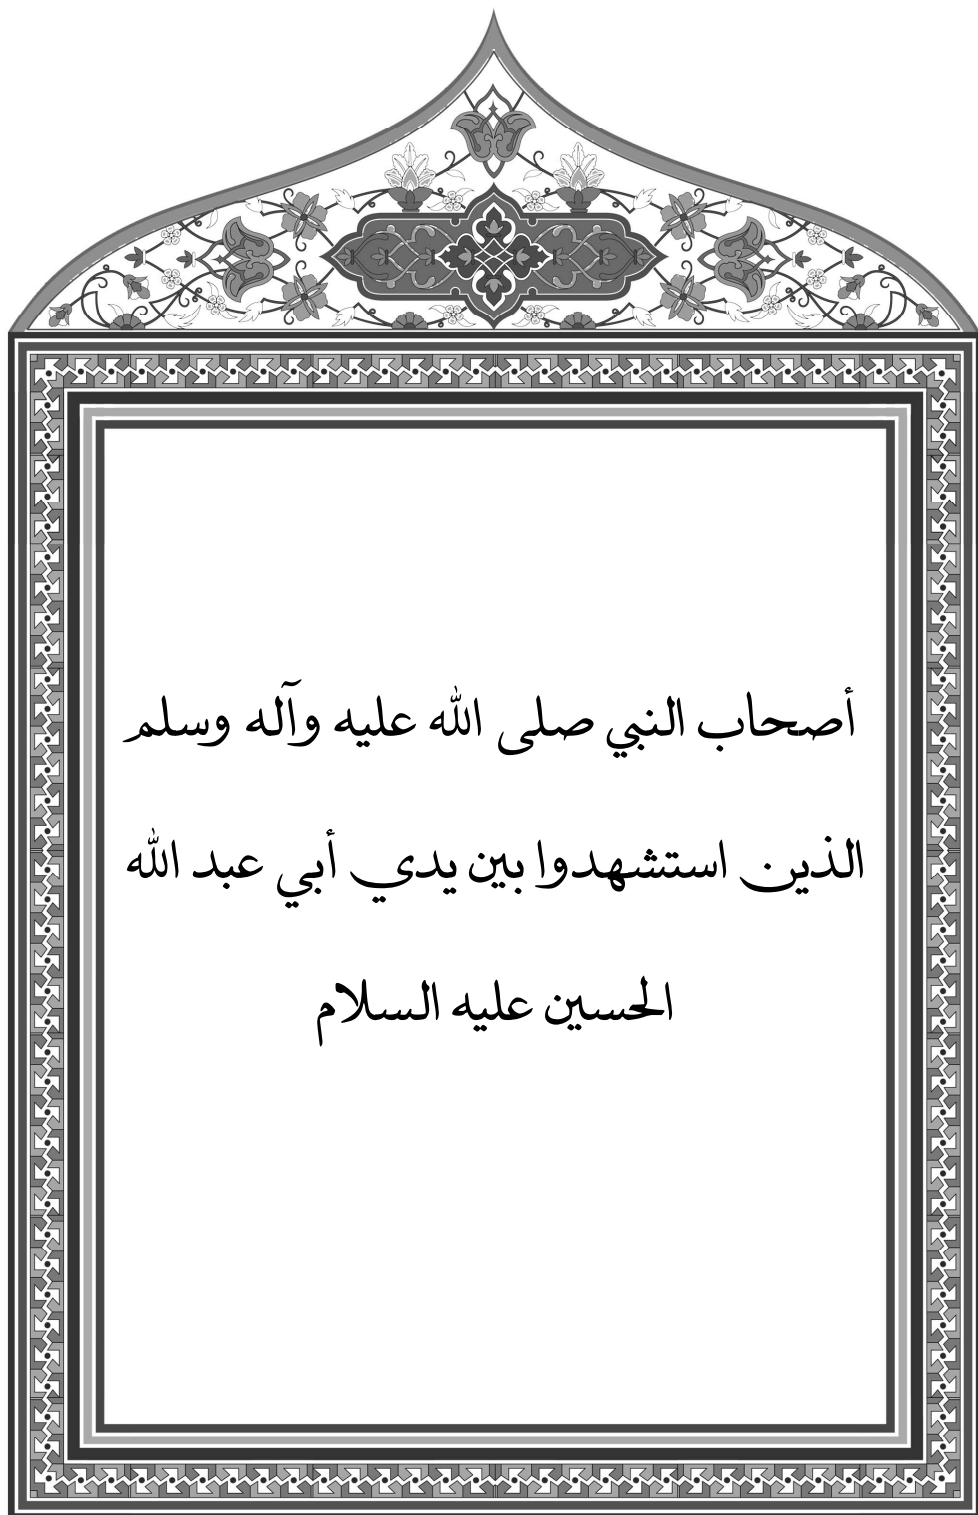 أصحاب النبي صلى الله عليه وآله وسلم
الذين استشهدوا بين يدي أبي عبد الله
الحسين عليه السلام